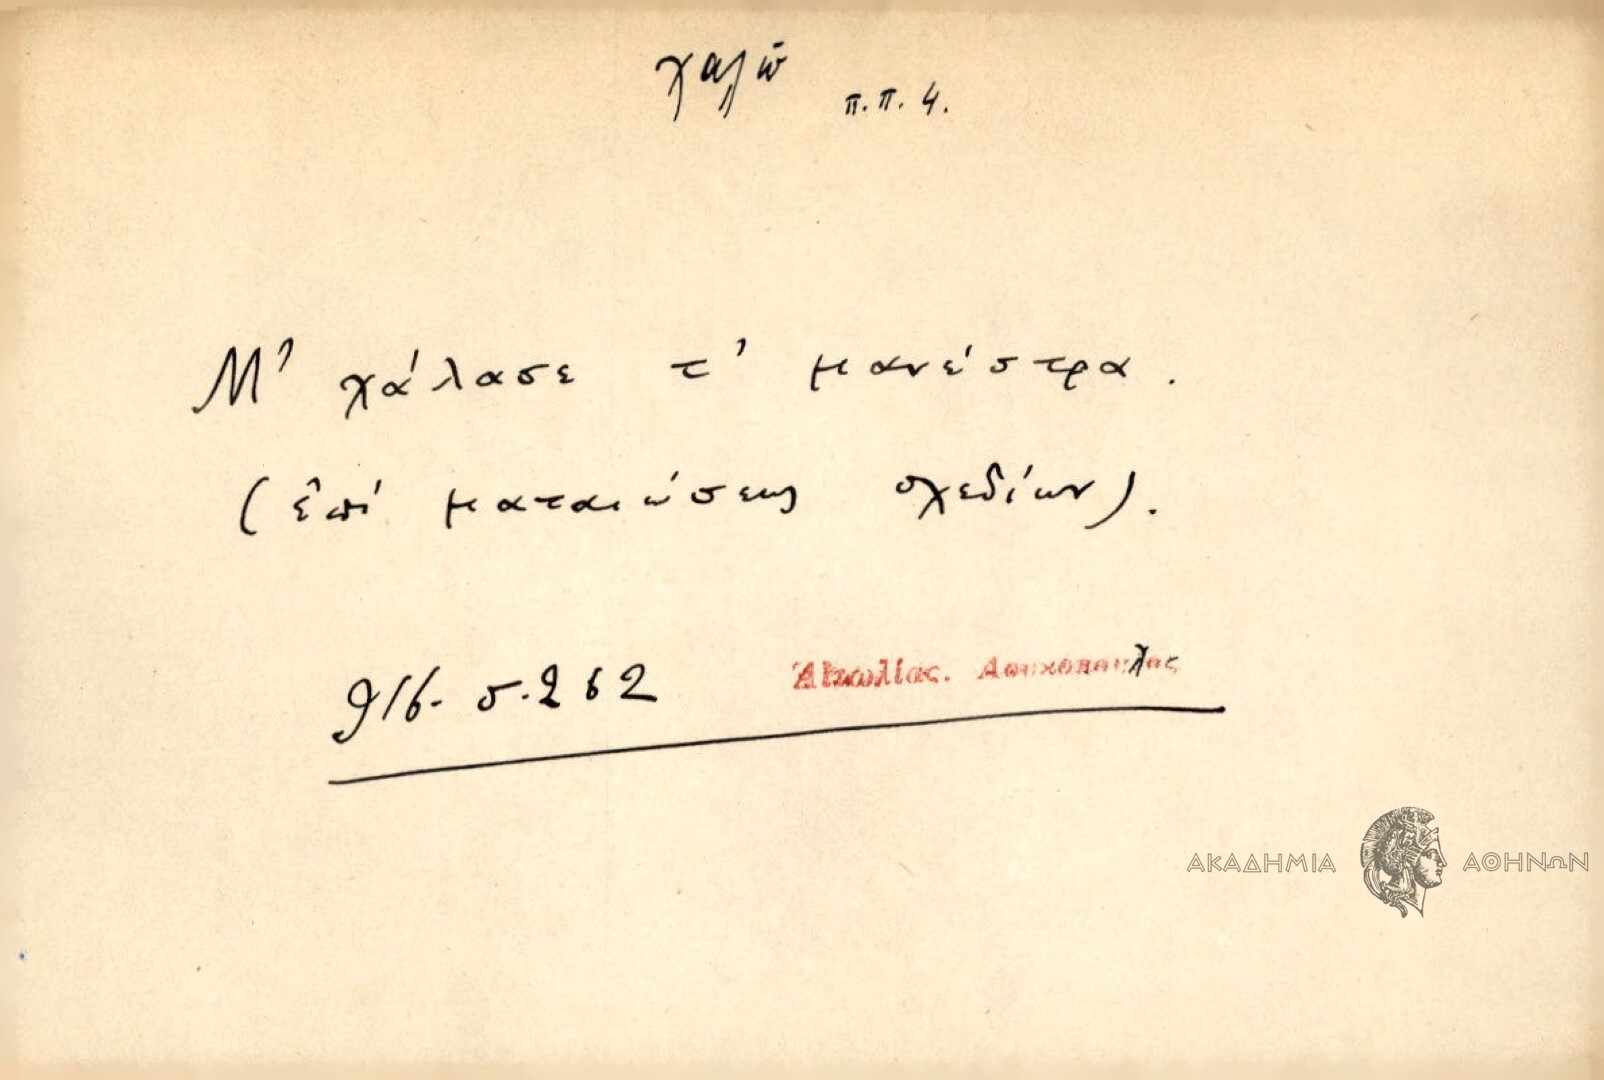 χαλῶ
π.π. 4.
Μ' χάλασε τ' μανέστρα.
(ἐπί ματαιώσεως σχεδίων).
916. σ. 262 Αἰτωλίας. Λουκόπουλος
ΑΚΑΔΗΜΙΑ ΑΘΗΝΩΝ